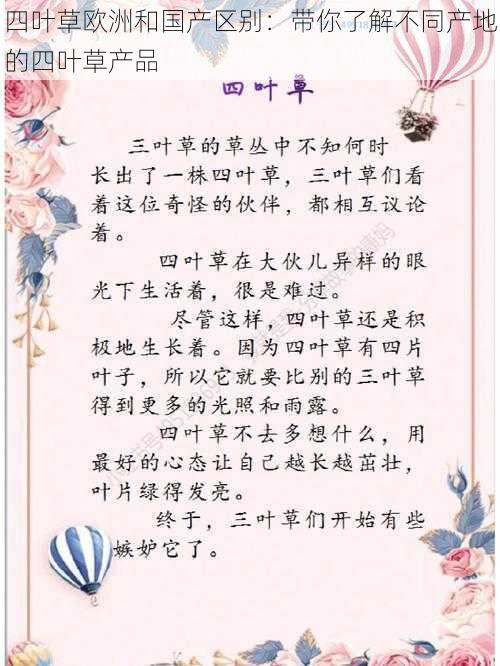 四叶草欧洲和国产区别：带你了解不同产地
的四叶草产品
四叶草
三叶草的草丛中不知何时
长出了一株四叶草，三叶草们看
着这位奇怪的伙伴，都相互议论
着。
四叶草在大伙儿异样的眼
光下生活着，很是难过。
尽管这样，四叶草还是积
极地生长着。因为四叶草有四片
叶子，所以它就要比别的三叶草
得到更多的光照和雨露。
四叶草不去多想什么，用
最好的心态让自己越长越茁壮，
叶片绿得发亮。
终于，三叶草们开始有些
嫉妒它了。